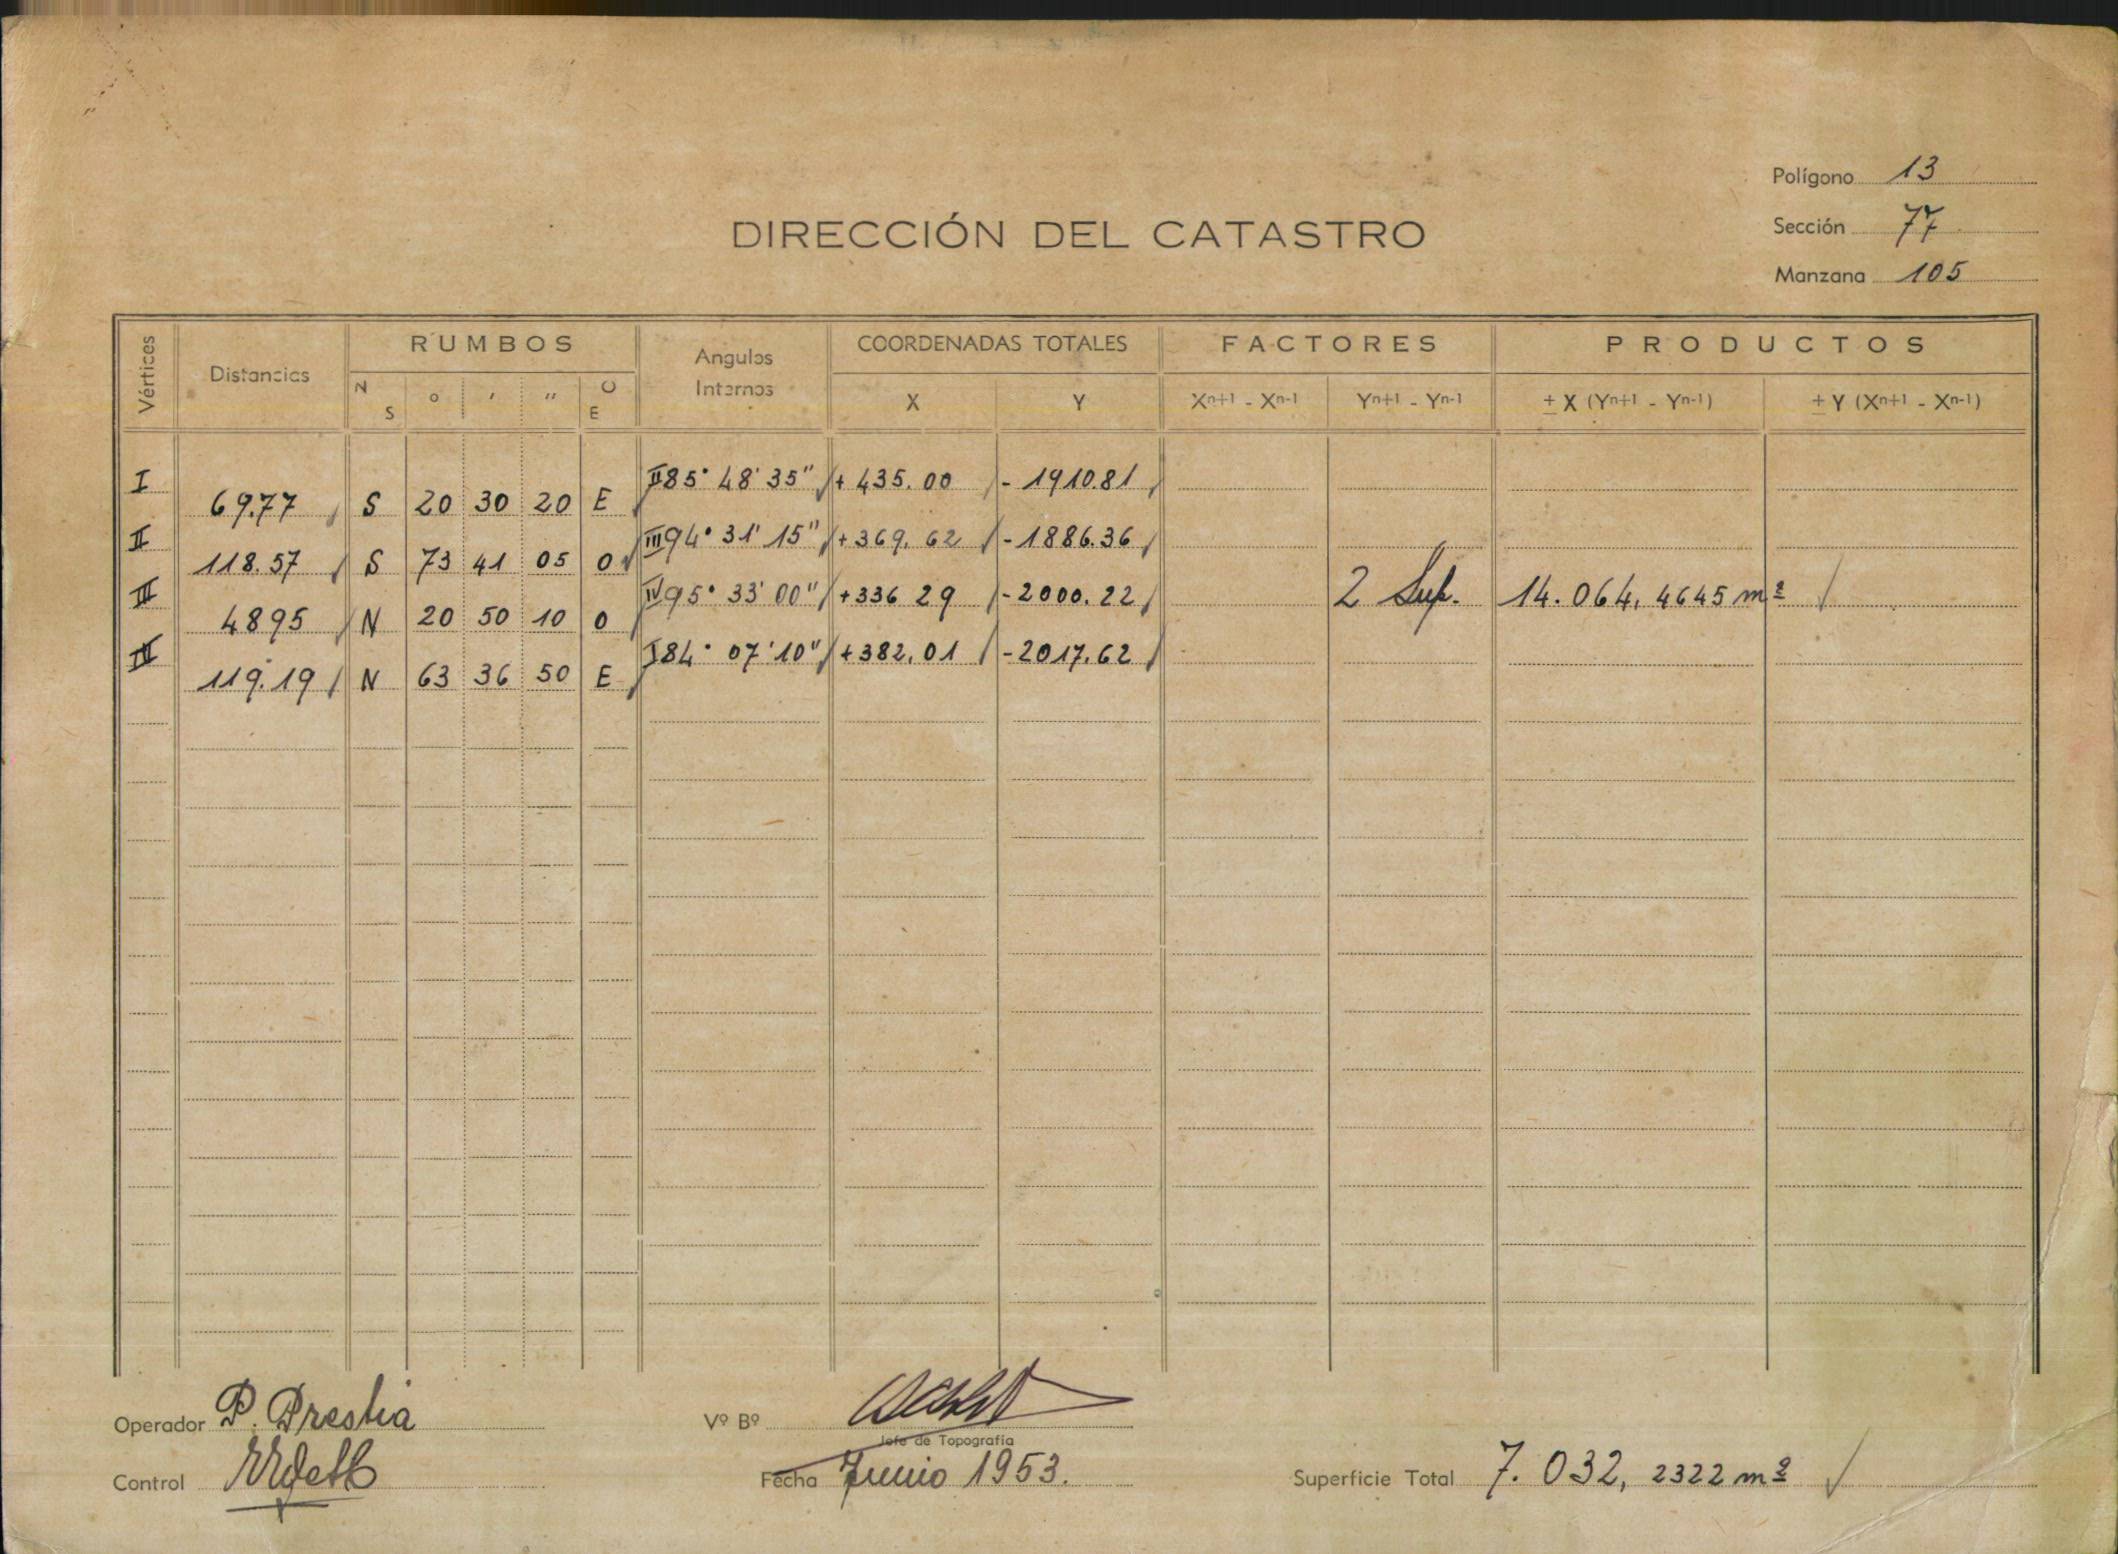 Polígono 13
DIRECCIÓN DEL CATASTRO
Sección 77
Manzana 105
Vértices Distancias RUMBOS Angulos Internos COORDENADAS TOTALES FACTORES PRODUCTOS
N S ° ' " O E X Y Xn+1 - Xn-1 Yn+1 - Yn-1 ± X (Yn+1 - Yn-1) ± Y (Xn+1 - Xn-1)
I II 85° 48' 35" + 435.00 - 1910.81
69.77 S 20 30 20 E
II III 94° 31' 15" + 369.62 - 1886.36
118.57 S 73 41 05 O
III IV 95° 33' 00" + 336 29 - 2000.22 2 Sup. 14.064,4645 m²
4895 N 20 50 10 O
IV I 84° 07' 10" + 382.01 - 2017.62
119.19 N 63 36 50 E
Operador P. Prestia Vº Bº
Jefe de Topografía
Control Fecha Junio 1953. Superficie Total 7.032,2322 m²